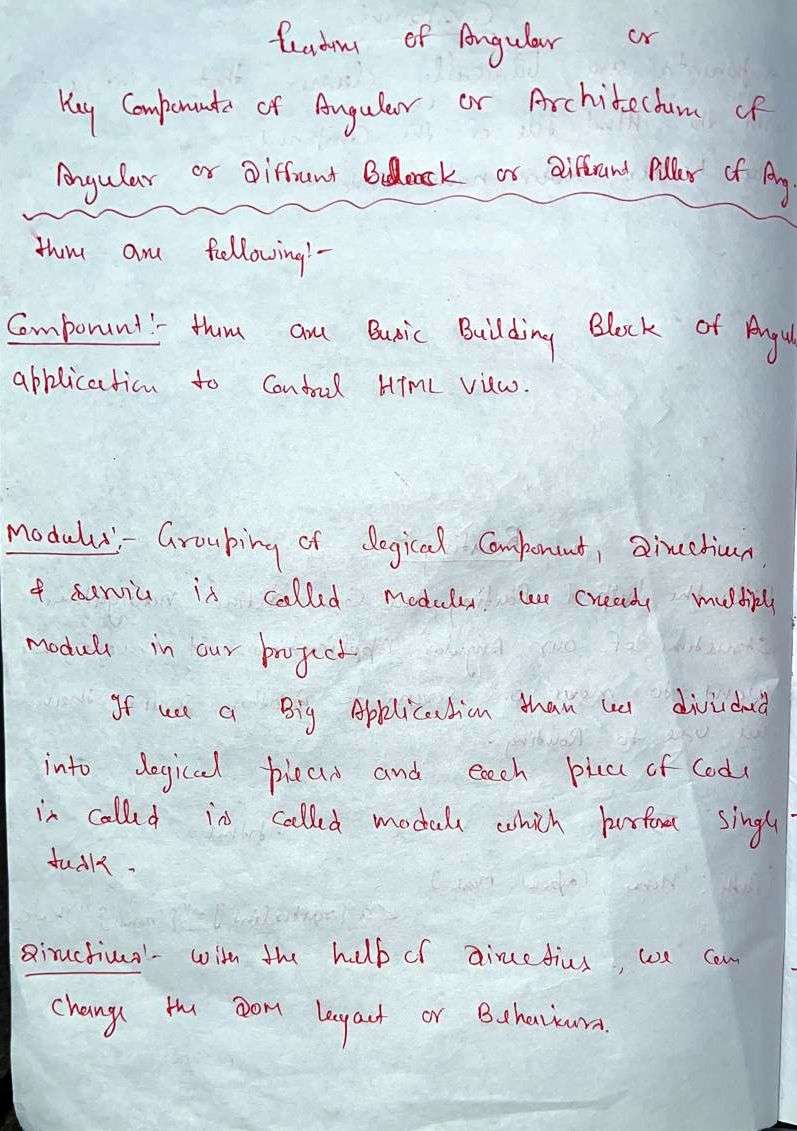 Features of Angular or
Key Components of Angular or Architecture of
Angular or Different Block or Different Piller of Ang.
there are following:-
Component:- there are Basic Building Block of Angul
application to Control HTML View.
Modules:- Grouping of logical Component, Directives,
& service is called Modules. we create multiple
Module in our project.
If we a Big Application than we divided
into logical pieces and each piece of Code
is called is called module which perform single
task.
Directives:- with the help of directives, we can
change the DOM layout or Behaviours.